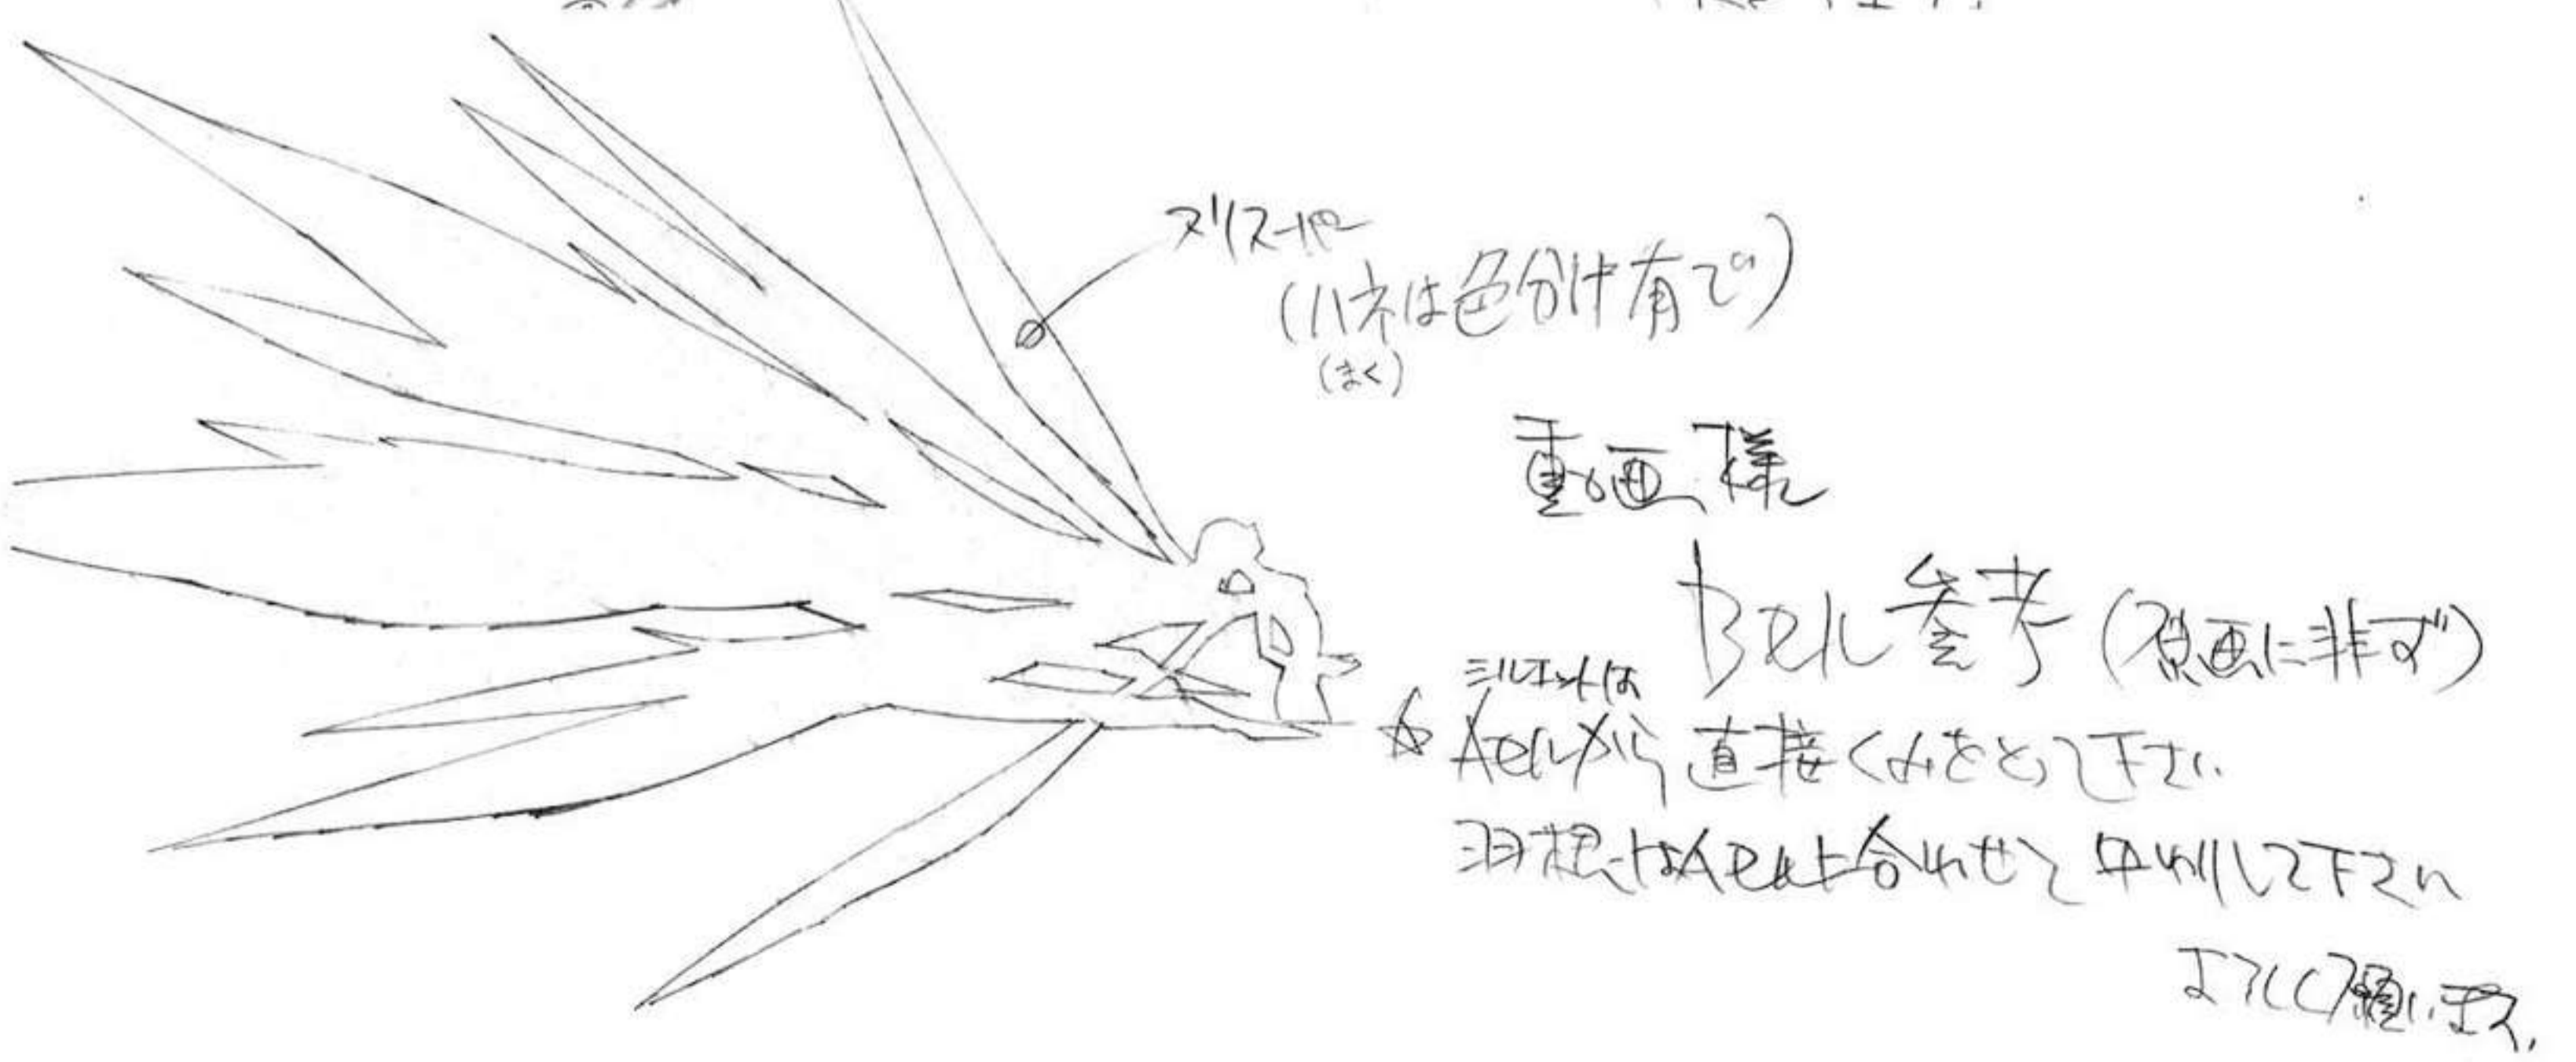 ヌリスーパー
(ハネは色分け有で)
(まく)
動画様
Bセル参考 (原画に非ず)
シルエットは
☆Aセルから直接くみをとって下さい
羽根はAセルと合わせて中割して下さい
よろしく願います。